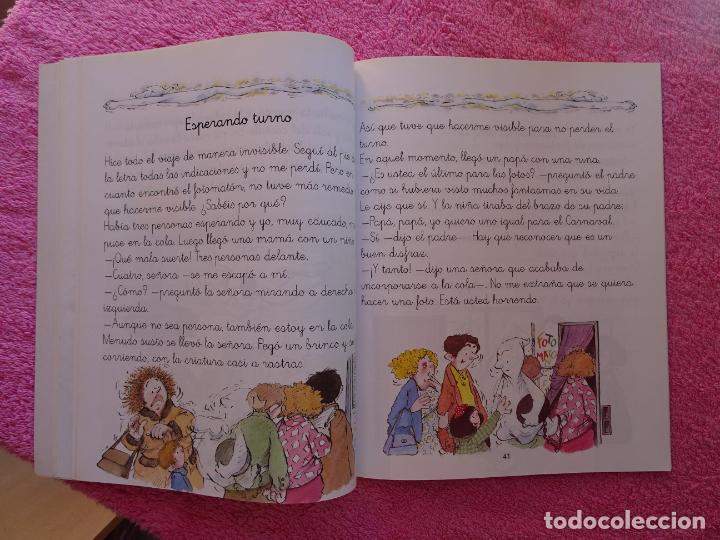 Esperando turno
Hice todo el viaje de manera invisible. Seguí al pie
la letra todas las indicaciones y no me perdí. Pero en
cuanto encontré el fotomatón, no tuve más remedio
que hacerme visible. ¿Sabéis por qué?
Había tres personas esperando y yo, muy educado,
puse en la cola. Luego llegó una mamá con un niño
—¡Qué mala suerte! Tres personas delante.
—Cuatro, señora —se me escapó a mí.
—¿Cómo? —preguntó la señora mirando a derecha
izquierda.
—Aunque no sea persona, también estoy en la cola
Menudo susto se llevó la señora. Pegó un brinco y se
corriendo, con la criatura casi a rastras.
Así que tuve que hacerme visible para no perder el
turno.
En aquel momento, llegó un papá con una niña.
—¿Es usted el último para las fotos? —preguntó el padre
como si hubiera visto muchos fantasmas en su vida.
Le dije que sí. Y la niña tiraba del brazo de su padre:
—Papá, papá, yo quiero uno igual para el Carnaval.
—Sí —dijo el padre—. Hay que reconocer que es un
buen disfraz.
—¡Y tanto! —dijo una señora que acababa de
incorporarse a la cola—. No me extraña que se quiera
hacer una foto. Está usted horrendo.
FOTO
MATÓN
41
todocoleccion.net